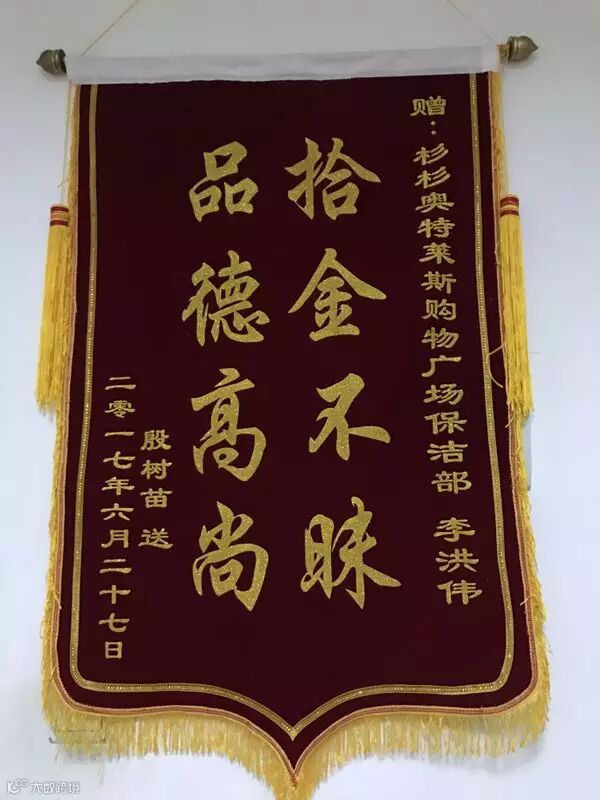 赠：杉杉奥特莱斯购物广场保洁部 李洪伟
拾金不昧
品德高尚
殷树苗 送
二零一七年六月二十七日
大数跨境